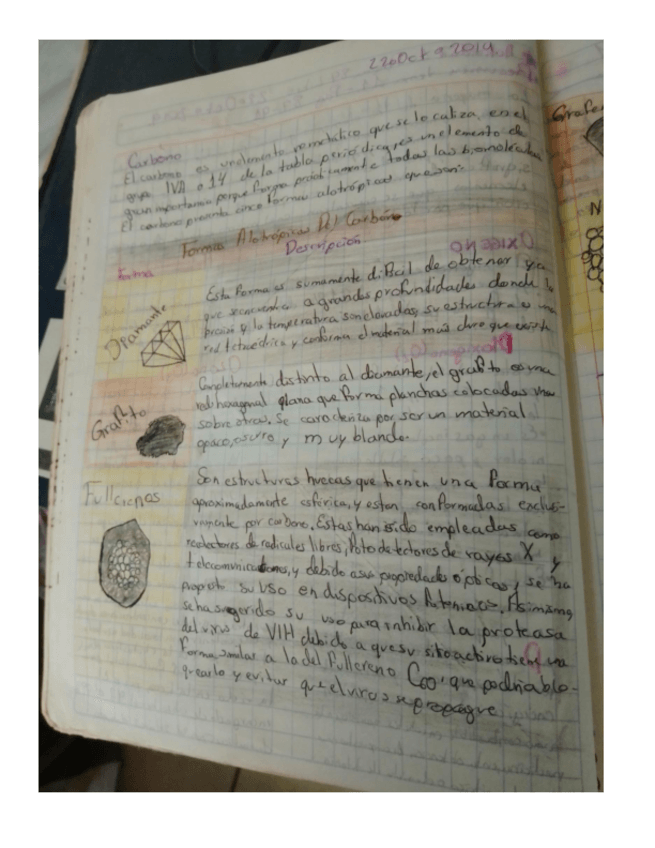 22 Oct 2019
Carbono
El carbono es un elemento no metálico que se localiza en el
grupo IVA o 14 de la tabla periódica, es un elemento de
gran importancia porque forma prácticamente todas las biomoléculas
El carbono presenta cinco formas alotrópicas que son:
Formas Alotrópicas Del Carbono
Forma
Descripción
Diamante
Esta forma es sumamente dificil de obtener ya
que se encuentra a grandes profundidades donde la
presión y la temperatura son elevadas, su estructura es una
red tetraédrica y conforma el material más duro que existe
Grafito
Completamente distinto al diamante, el grafito es una
red hexagonal plana que forma planchas colocadas una
sobre otras. Se caracteriza por ser un material
opaco, oscuro y muy blando.
Fullerenos
Son estructuras huecas que tienen una forma
aproximadamente esférica, y estan conformadas exclusi-
vamente por carbono. Estas han sido empleadas como
de radicales libres, fotodetectores de rayos X y
telecomunicaciones, y debido a sus propiedades ópticas, se ha
su uso en dispositivos Asimismo,
se ha sugerido su uso para inhibir la proteasa
del virus de VIH debido a que su sitio activo tiene una
forma similar a la del fullereno C60, que podria blo-
quearlo y evitar que el virus se propague
Grafe
N